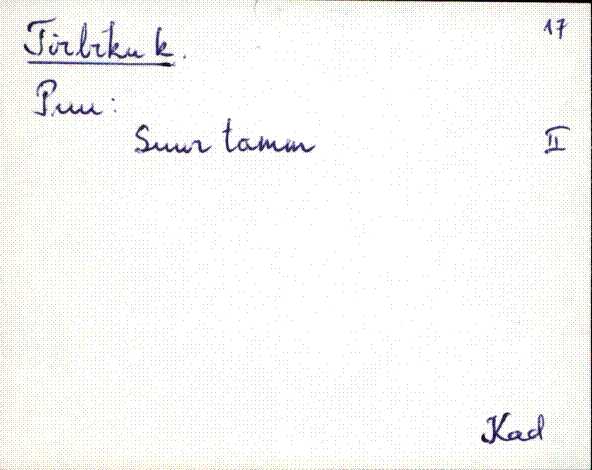 Tirbiku k. 17
Puu:
Suur tamm II
Kad